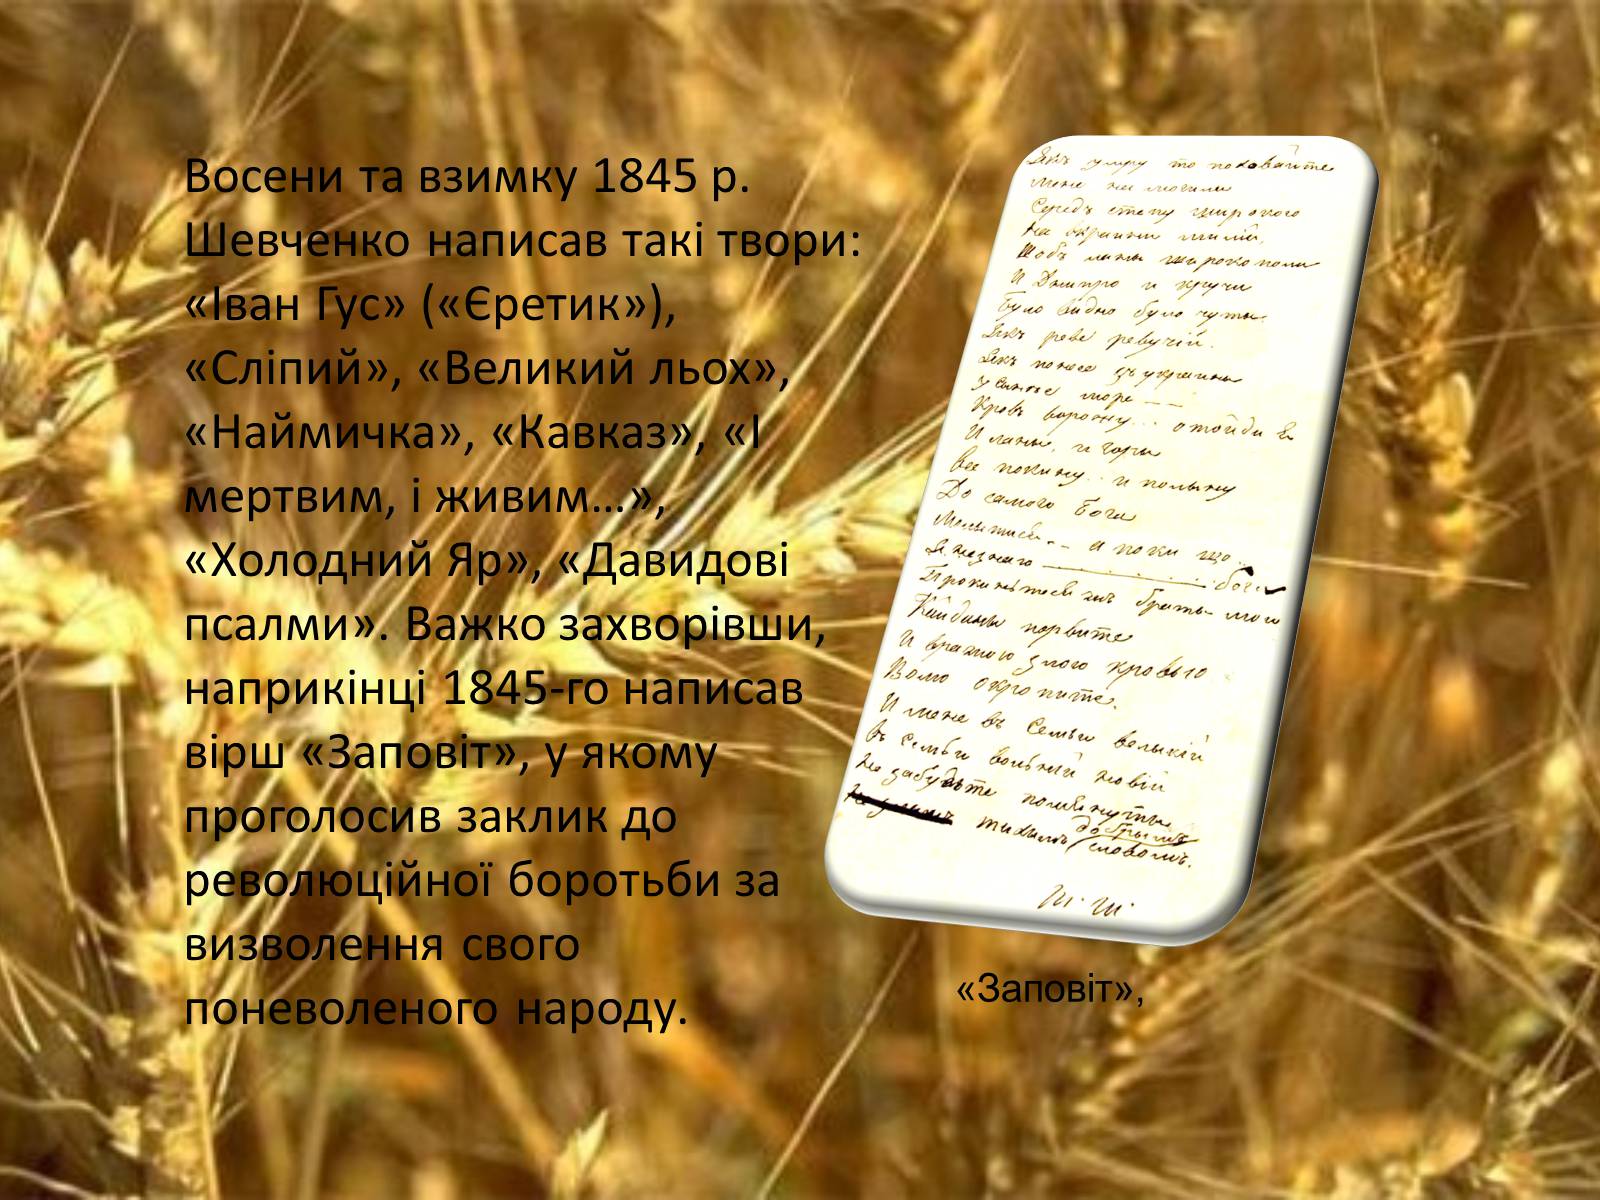 Восени та взимку 1845 р.
Шевченко написав такі твори:
«Іван Гус» («Єретик»),
«Сліпий», «Великий льох»,
«Наймичка», «Кавказ», «І
мертвим, і живим…»,
«Холодний Яр», «Давидові
псалми». Важко захворівши,
наприкінці 1845-го написав
вірш «Заповіт», у якому
проголосив заклик до
революційної боротьби за
визволення свого
поневоленого народу.
Якъ умру то поховайте
мене на могили
Середъ степу широкого
на
Щобъ ланы широкополи
И Днипро и кручи
було видно було чуты
Якъ реве ревучій.
Якъ понесе зъ украины
у синее море
Кровь ворожу... отойди я
И ланы, и горы
все покину.. и полыну
До самого бога
а поки що
Я незнаю бога
Кайданы порвите
И вражою злою кровью
Волю окропите.
И мене въ семьи великій
въ семьи вольній новій
Не забудьте помьянуты
тихымъ добрымъ
словомъ.
Ш. Ш.
«Заповіт»,